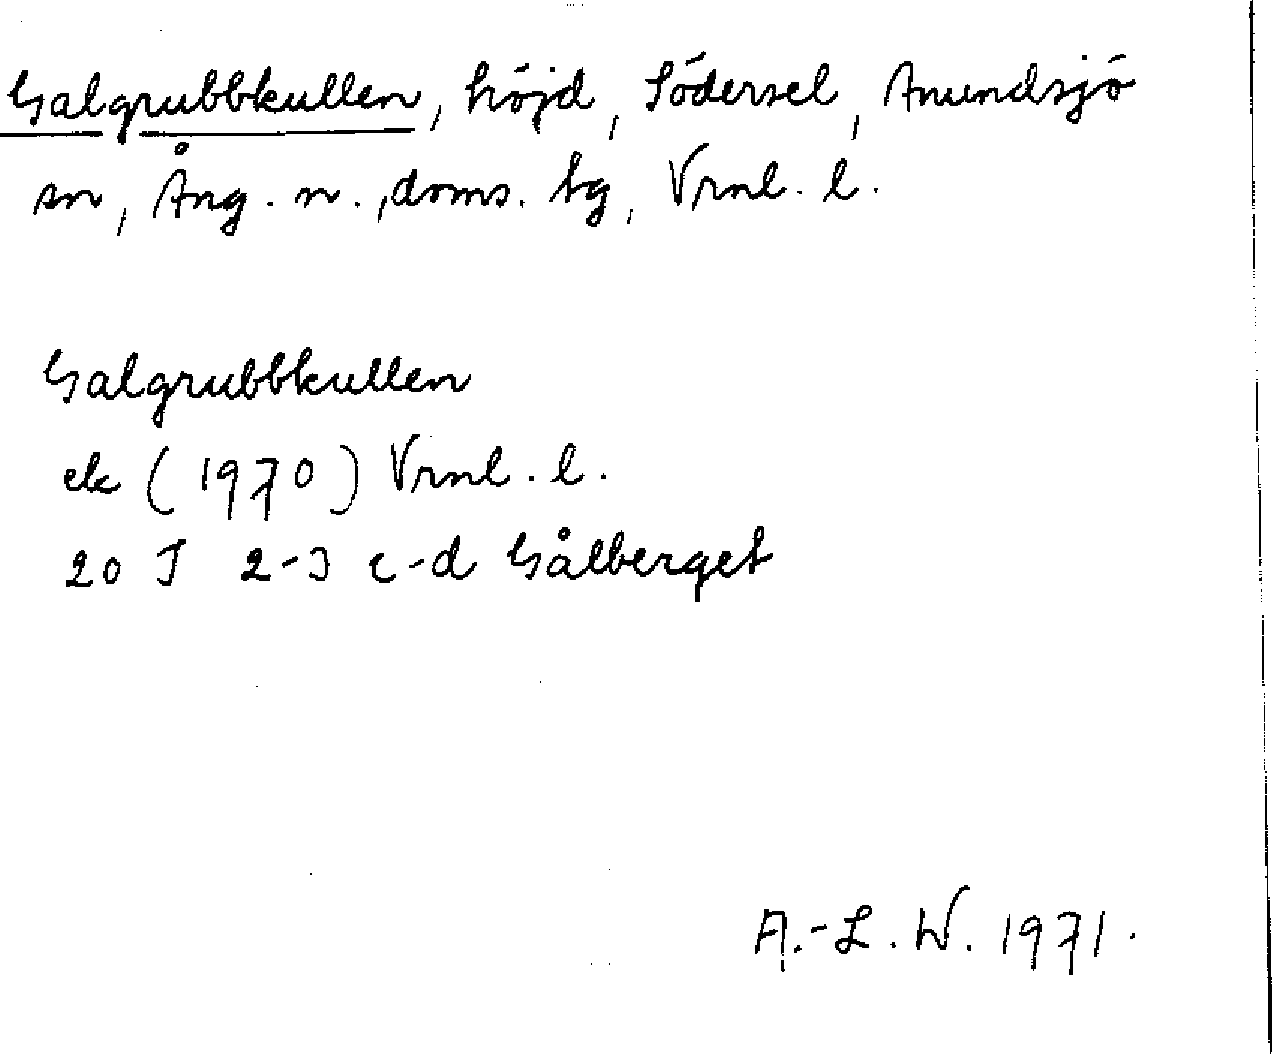 Galgrubbkullen, höjd, Södersel, Anundsjö
sn, Ång. n., doms. bg, Vrnl. l.
Galgrubbkullen
ek (1970) Vrnl. l.
20 J 2-3 c-d Gålberget
A.-L. W. 1971.